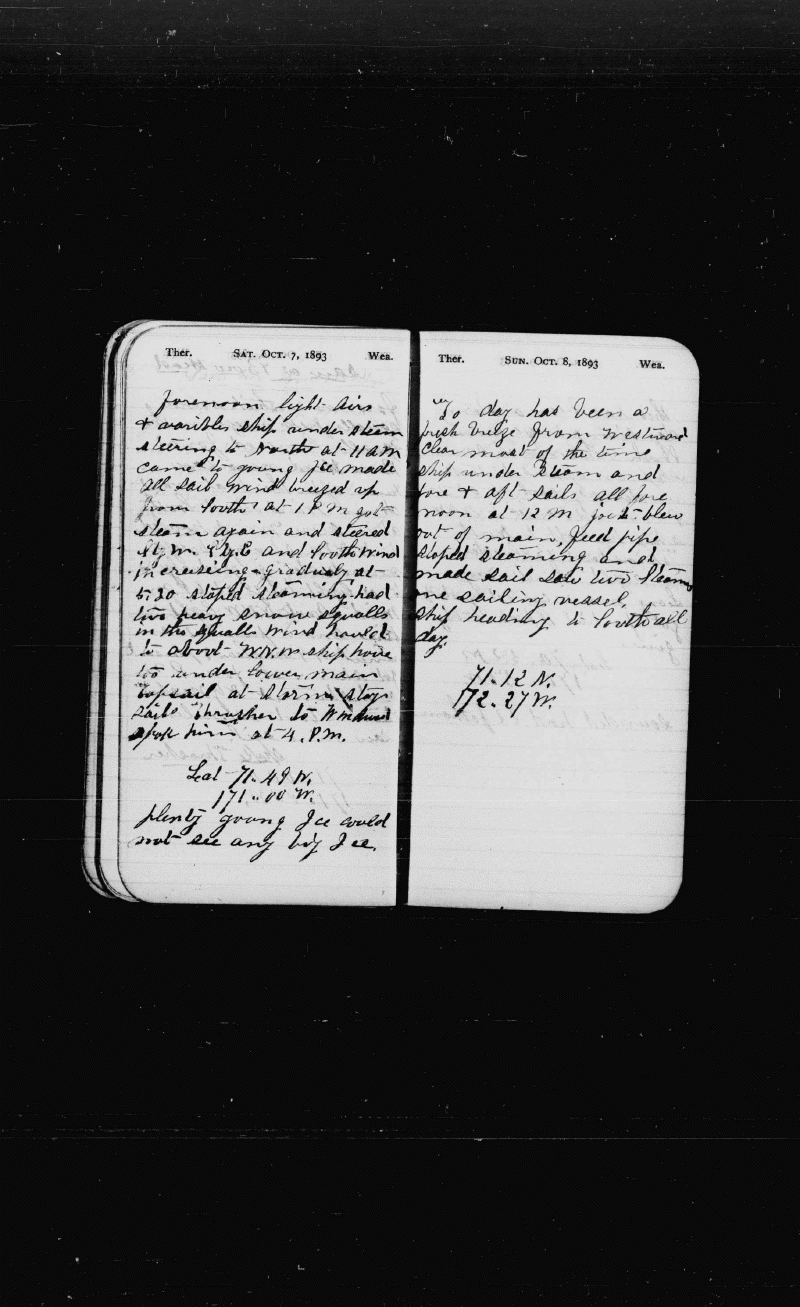 Ther. SAT. OCT. 7, 1893 Wea.
forenoon light airs
& varibles ship under steam
steering to North at 11 AM
came to young Ice made
all sail wind breezed up
from South at 1 P.M got
steam again and steered
and South wind
increiseing gradualy at
5.20 stoped steaming had
two heavy snow squalls
in the squalls wind hauld
to about W.N.W ship hove
too under lower main
topsail at storm stay
sails Thrasher to Windward
spok him at 4. P.M.
Lat 71.. 49 N.
171.. 00 W.
plenty young Ice could
not see any big Ice.
Ther. SUN. OCT. 8, 1893 Wea.
To day has been a
fresh breze from Westward
Clear most of the time
ship under Steam and
fore & aft sails all fore
noon at 12 M blew
out of main, feed pipe
stoped steaming and
made sail saw two Steamers
one sailing vessel,
ship heading to South all
day.
71.. 12 N.
172.. 27 W.